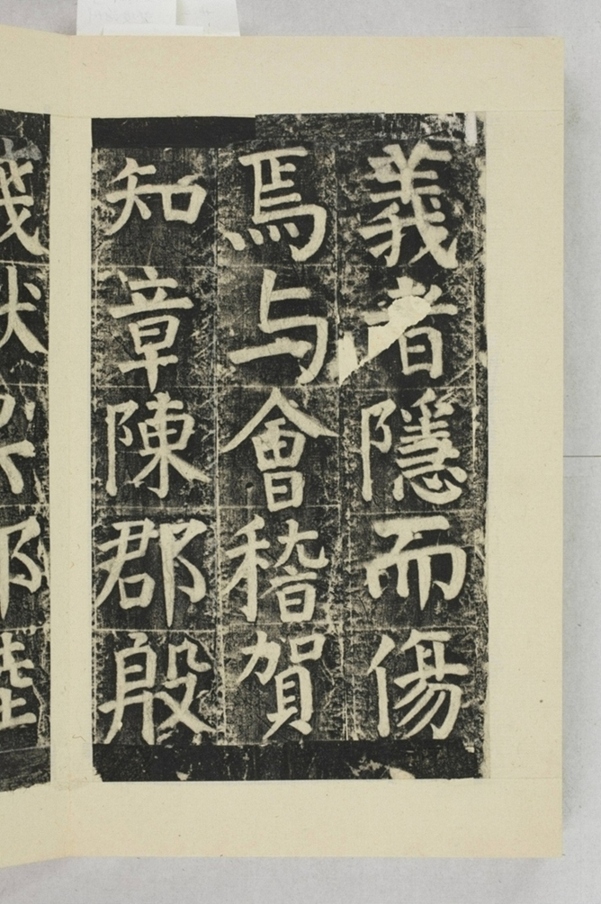 義者隱而傷
焉与會稽賀
知章陳郡殷